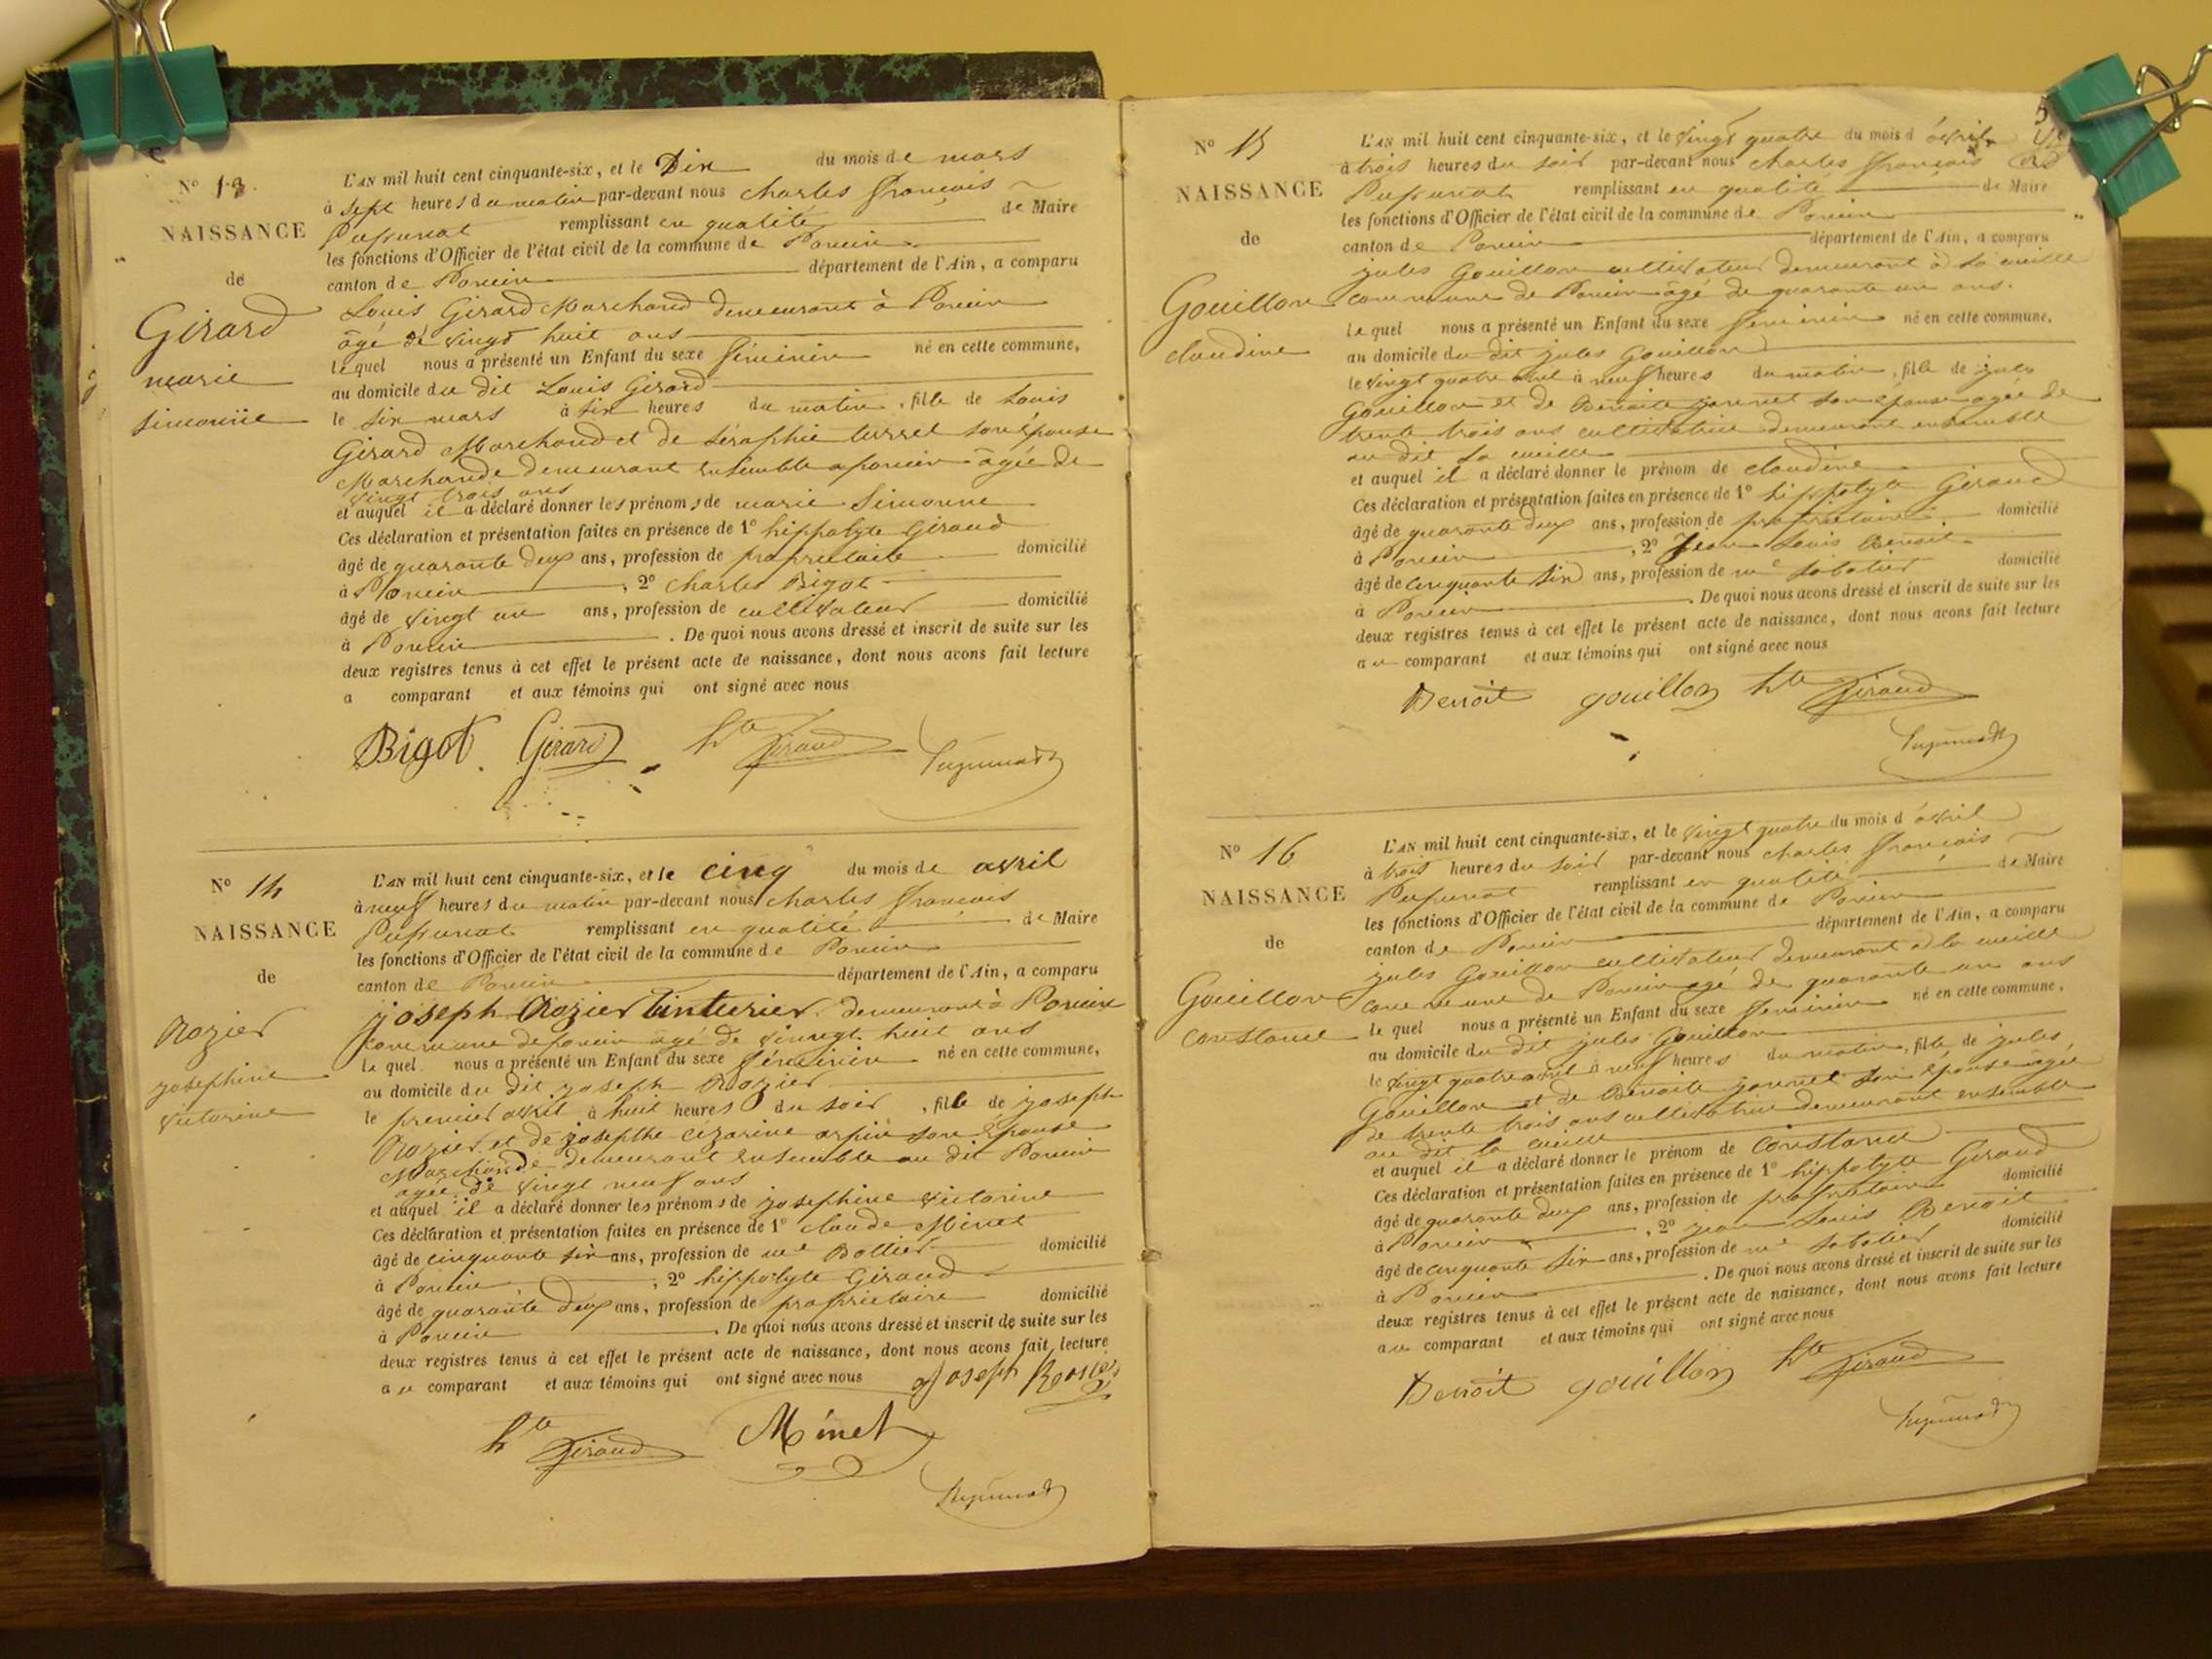 N° 13
NAISSANCE
de
Girard
marie
simonne
L'AN mil huit cent cinquante-six, et le Dix du mois de mars
à sept heures du matin par-devant nous charles françois
remplissant en qualité de Maire
les fonctions d'Officier de l'état civil de la commune de Poncin
canton de Poncin département de l'Ain, a comparu
Louis Girard Marchand demeurant à Poncin
âgé de vingt huit ans
lequel nous a présenté un Enfant du sexe féminin né en cette commune,
au domicile du dit Louis Girard
le six mars à six heures du matin, fille de Louis
Girard Marchand et de Séraphie son épouse
Marchande demeurant ensemble a poncin âgée de
vingt trois ans
et auquel il a déclaré donner les prénoms de marie Simonne
Ces déclaration et présentation faites en présence de 1° hippolyte Giraud
âgé de quarante deux ans, profession de propriétaire domicilié
à Poncin, 2° charles Bigot
âgé de vingt un ans, profession de cultivateur domicilié
à Poncin. De quoi nous avons dressé et inscrit de suite sur les
deux registres tenus à cet effet le présent acte de naissance, dont nous avons fait lecture
a comparant et aux témoins qui ont signé avec nous
Bigot Girard hte Giraud
N° 14
NAISSANCE
de
Rozier
josephine
victorine
L'AN mil huit cent cinquante-six, et le cinq du mois de avril
à neuf heures du matin par-devant nous charles françois
remplissant en qualité de Maire
les fonctions d'Officier de l'état civil de la commune de Poncin
canton de Poncin département de l'Ain, a comparu
joseph Rozier tinturier demeurant à Poncin
commune de poncin âgé de vinngt huit ans
le quel nous a présenté un Enfant du sexe féminin né en cette commune,
au domicile du dit joseph Rozier
le premier avril à huit heures du soir, fille de joseph
Rozier et de josepthe cézarine arpin son épouse
Marchande demeurant ensemble au dit Poncin
agée de vingt neuf ans
et auquel il a déclaré donner les prénoms de josephine victorine
Ces déclaration et présentation faites en présence de 1° claude Minet
âgé de cinquante six ans, profession de md Bottier domicilié
à Poncin, 2° hippolyte Giraud
âgé de quarante deux ans, profession de propriétaire domicilié
à Poncin. De quoi nous avons dressé et inscrit de suite sur les
deux registres tenus à cet effet le présent acte de naissance, dont nous avons fait lecture
au comparant et aux témoins qui ont signé avec nous Joseph Rosier
hte Giraud Minet
N° 15
NAISSANCE
de
Gouillon
claudine
L'AN mil huit cent cinquante-six, et le vingt quatre du mois d'avril
à trois heures du soir par-devant nous charles françois
remplissant en qualité de Maire
les fonctions d'Officier de l'état civil de la commune de Poncin
canton de Poncin département de l'Ain, a comparu
jules Gouillon cultivateur demeurant à la cueille
commune de Poncin âgé de quarante un ans.
le quel nous a présenté un Enfant du sexe féminin né en cette commune,
au domicile du dit jules Gouillon
le vingt quatre avril à neuf heures du matin, fille de jules
Gouillon et de Benoite son épouse agée de
trente trois ans cultivatrice demeurant ensemble
au dit la cueille
et auquel il a déclaré donner le prénom de claudine
Ces déclaration et présentation faites en présence de 1° hippolyte Giraud
âgé de quarante deux ans, profession de propriétaire domicilié
à Poncin, 2° Jean Louis Benoit
âgé de cinquante six ans, profession de md sabotier domicilié
à Poncin. De quoi nous avons dressé et inscrit de suite sur les
deux registres tenus à cet effet le présent acte de naissance, dont nous avons fait lecture
au comparant et aux témoins qui ont signé avec nous
Benoit gouillon hte Giraud
N° 16
NAISSANCE
de
Gouillon
constance
L'AN mil huit cent cinquante-six, et le vingt quatre du mois d'avril
à trois heures du soir par-devant nous charles françois
remplissant en qualité de Maire
les fonctions d'Officier de l'état civil de la commune de Poncin
canton de Poncin département de l'Ain, a comparu
jules Gouillon cultivateur demeurant à la cueille
commune de Poncin agé de quarante un ans
le quel nous a présenté un Enfant du sexe féminin né en cette commune,
au domicile du dit jules Gouillon
le vingt quatre avril à neuf heures du matin, fille de jules
Gouillon et de Benoite son épouse agée
de trente trois ans cultivatrice demeurant ensemble
au dit la cueille
et auquel il a déclaré donner le prénom de constance
Ces déclaration et présentation faites en présence de 1° hippolyte Giraud
âgé de quarante deux ans, profession de propriétaire domicilié
à Poncin, 2° jean Louis Benoit
âgé de cinquante six ans, profession de md sabotier domicilié
à Poncin. De quoi nous avons dressé et inscrit de suite sur les
deux registres tenus à cet effet le présent acte de naissance, dont nous avons fait lecture
au comparant et aux témoins qui ont signé avec nous
Benoit gouillon hte Giraud